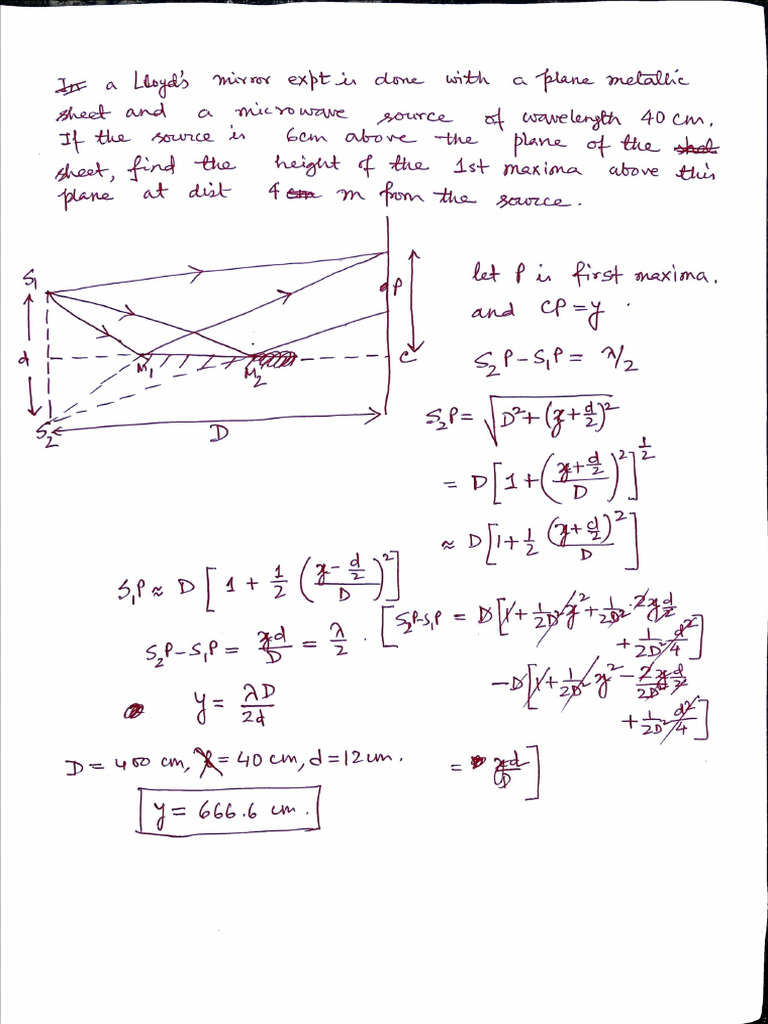 a Lloyd's mirror expt is done with a plane metallic
sheet and a microwave source of wavelength 40 cm.
If the source is 6cm above the plane of the
sheet, find the height of the 1st maxima above this
plane at dist 4 m from the source.
S₁
P
d
M₁
M₂
C
S₂
D
let P is first maxima.
and CP = y
S₂P - S₁P = λ/2
S₂P = √(D² + (y + d/2)²)
= D[1 + ((y + d/2)/D)²]^(1/2)
≈ D[1 + 1/2 ((y + d/2)/D)²]
S₁P ≈ D[1 + 1/2 ((y - d/2)/D)²]
S₂P - S₁P = yd/D = λ/2 .
y = λD/2d
[S₂P - S₁P = D[1 + 1/2D² y² + 1/2D² · 2y d/2
+ 1/2D² d²/4]
- D[1 + 1/2D² y² - 2y/2D² d/2
+ 1/2D² d²/4]
= yd/D]
D = 400 cm, λ = 40 cm, d = 12 cm.
y = 666.6 cm.